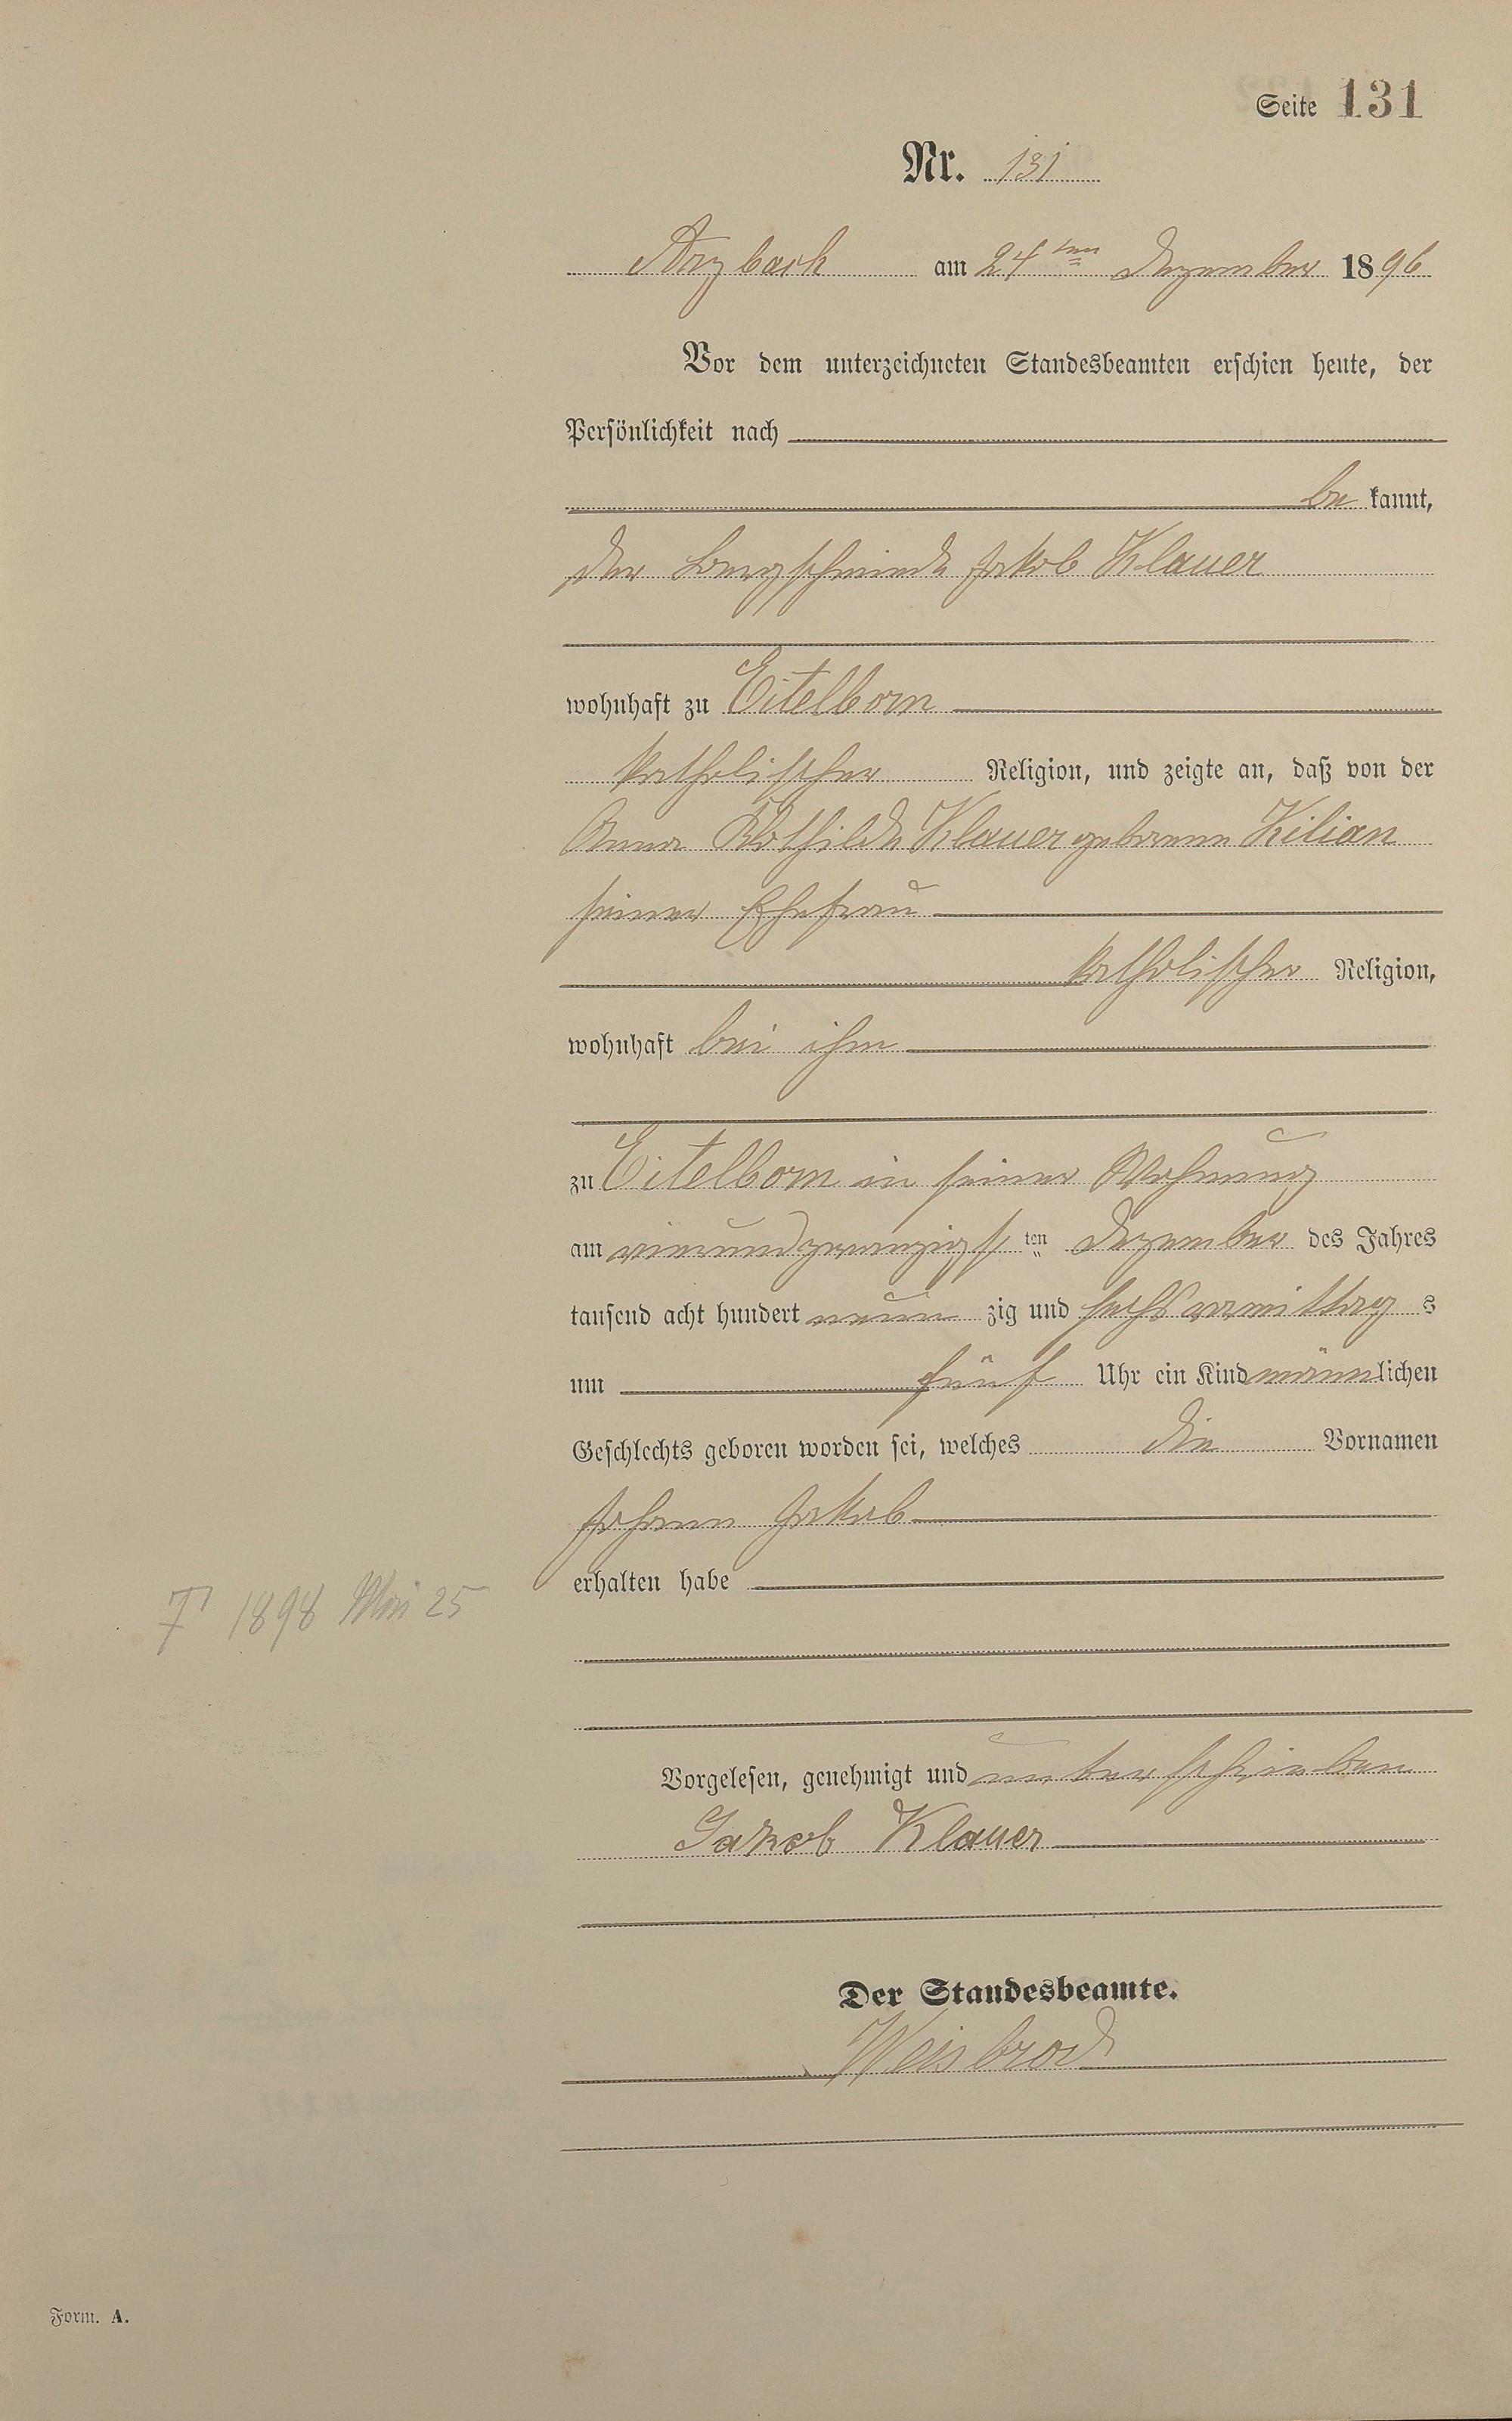 Seite 131
Nr. 131
Arzbach am 24ten Dezember 1896
Vor dem unterzeichneten Standesbeamten erschien heute, der
Persönlichkeit nach
be kannt,
der Bergschmied Jakob Klauer
wohnhaft zu Eitelborn
katholischer Religion, und zeigte an, daß von der
Anna Klothilde Klauer geborenen Kilian
seiner Ehefrau
katholischer Religion,
wohnhaft bei ihm
zu Eitelborn in seiner Wohnung
am vierundzwanzigsten Dezember des Jahres
tausend acht hundert neun zig und sechs vormittag s
um fünf Uhr ein Kind männlichen
Geschlechts geboren worden sei, welches die Vornamen
Johann Jakob
erhalten habe
1898 Mai 25
Vorgelesen, genehmigt und unterschrieben
Jakob Klauer
Der Standesbeamte.
Weisbrod
Form. A.